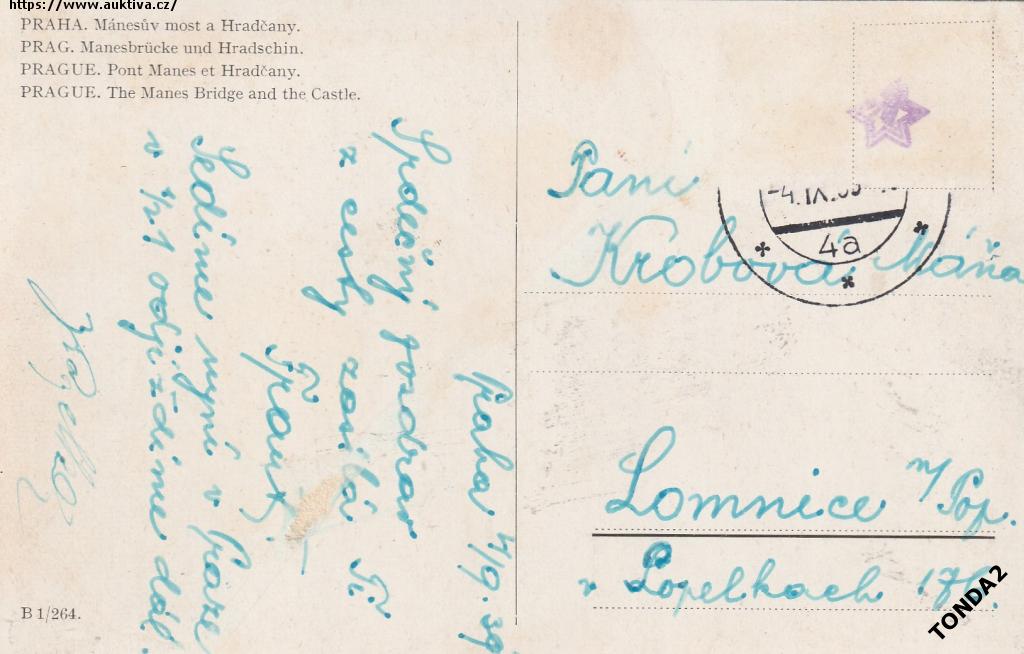 https://www.auktiva.cz/
PRAHA. Mánesův most a Hradčany.
PRAG. Manesbrücke und Hradschin.
PRAGUE. Pont Manes et Hradčany.
PRAGUE. The Manes Bridge and the Castle.
Praha 4/9. 39
Srdečný pozdrav
z cesty zasílá Ti
Frant.
Sedíme nyní v Praze
v 1/2 1 odjíždíme dál
B 1/264.
-4.IX.39
4a
Paní
Krobová Máňa
Lomnice n/Pop.
v Popelkach 17
TONDA2